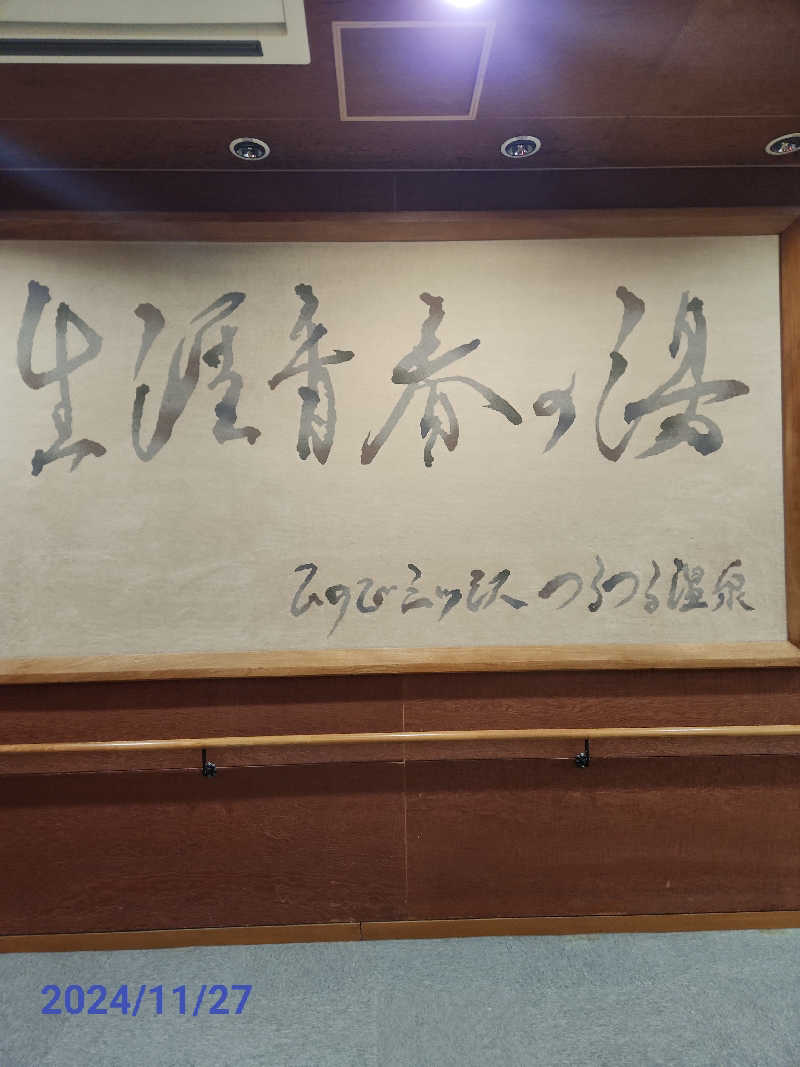 生涯青春の湯
ひので三ツ沢つるつる温泉
2024/11/27